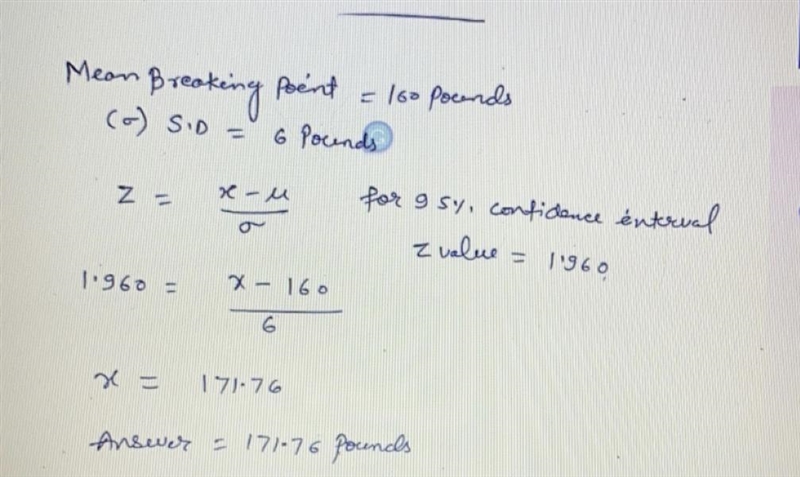 Mean Breaking Point = 160 Pounds
(σ) S.D = 6 Pounds
Z = x - μ / σ for 95%. confidence interval
Z value = 1.960
1.960 = x - 160 / 6
x = 171.76
Answer = 171.76 Pounds